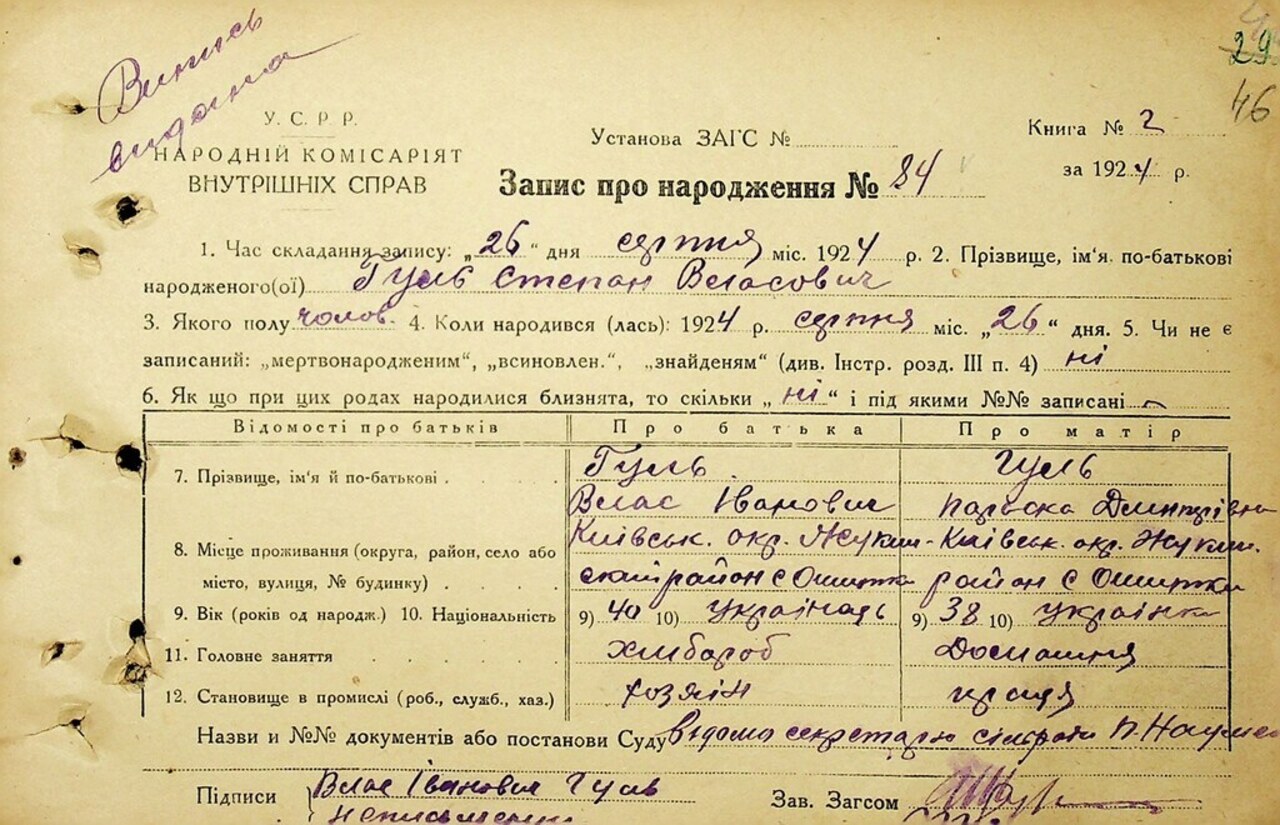 Випись
видана
29
46
У. С. Р. Р.
НАРОДНІЙ КОМІСАРІЯТ
ВНУТРІШНІХ СПРАВ
Установа ЗАГС №
Книга № 2
за 1924 р.
Запис про народження № 84
1. Час складання запису: „26“ дня серпня міс. 1924 р. 2. Прізвище, ім'я, по-батькові
народженого(ої) Гуль Степан Власович
3. Якого полу чолов. 4. Коли народився (лась): 1924 р. серпня міс. „26“ дня. 5. Чи не є
записаний: „мертвонародженим“, „всиновлен.“, „знайденям“ (див. Інстр. розд. III п. 4) ні
6. Як що при цих родах народилися близнята, то скільки „ні“ і під якими №№ записані —
Відомості про батьків Про батька Про матір
7. Прізвище, ім'я й по-батькові Гуль Гуль
Влас Іванович Параска Дмитрівна
8. Місце проживання (округа, район, село або Київськ. окр. Жукин- Київськ. окр. Жукин.
місто, вулиця, № будинку) ский район с Ошитка район с Ошитки
9. Вік (років од народж.) 10. Національність 9) 40 10) українець 9) 38 10) українка
11. Головне заняття хлібороб Домашня
12. Становище в промислі (роб., служб., хаз.) хозяїн праця
Назви и №№ документів або постанови Суду Відомо секретарю сільради П. Науме
Підписи Влас Іванович Гуль Зав. Загсом
Неписьменний